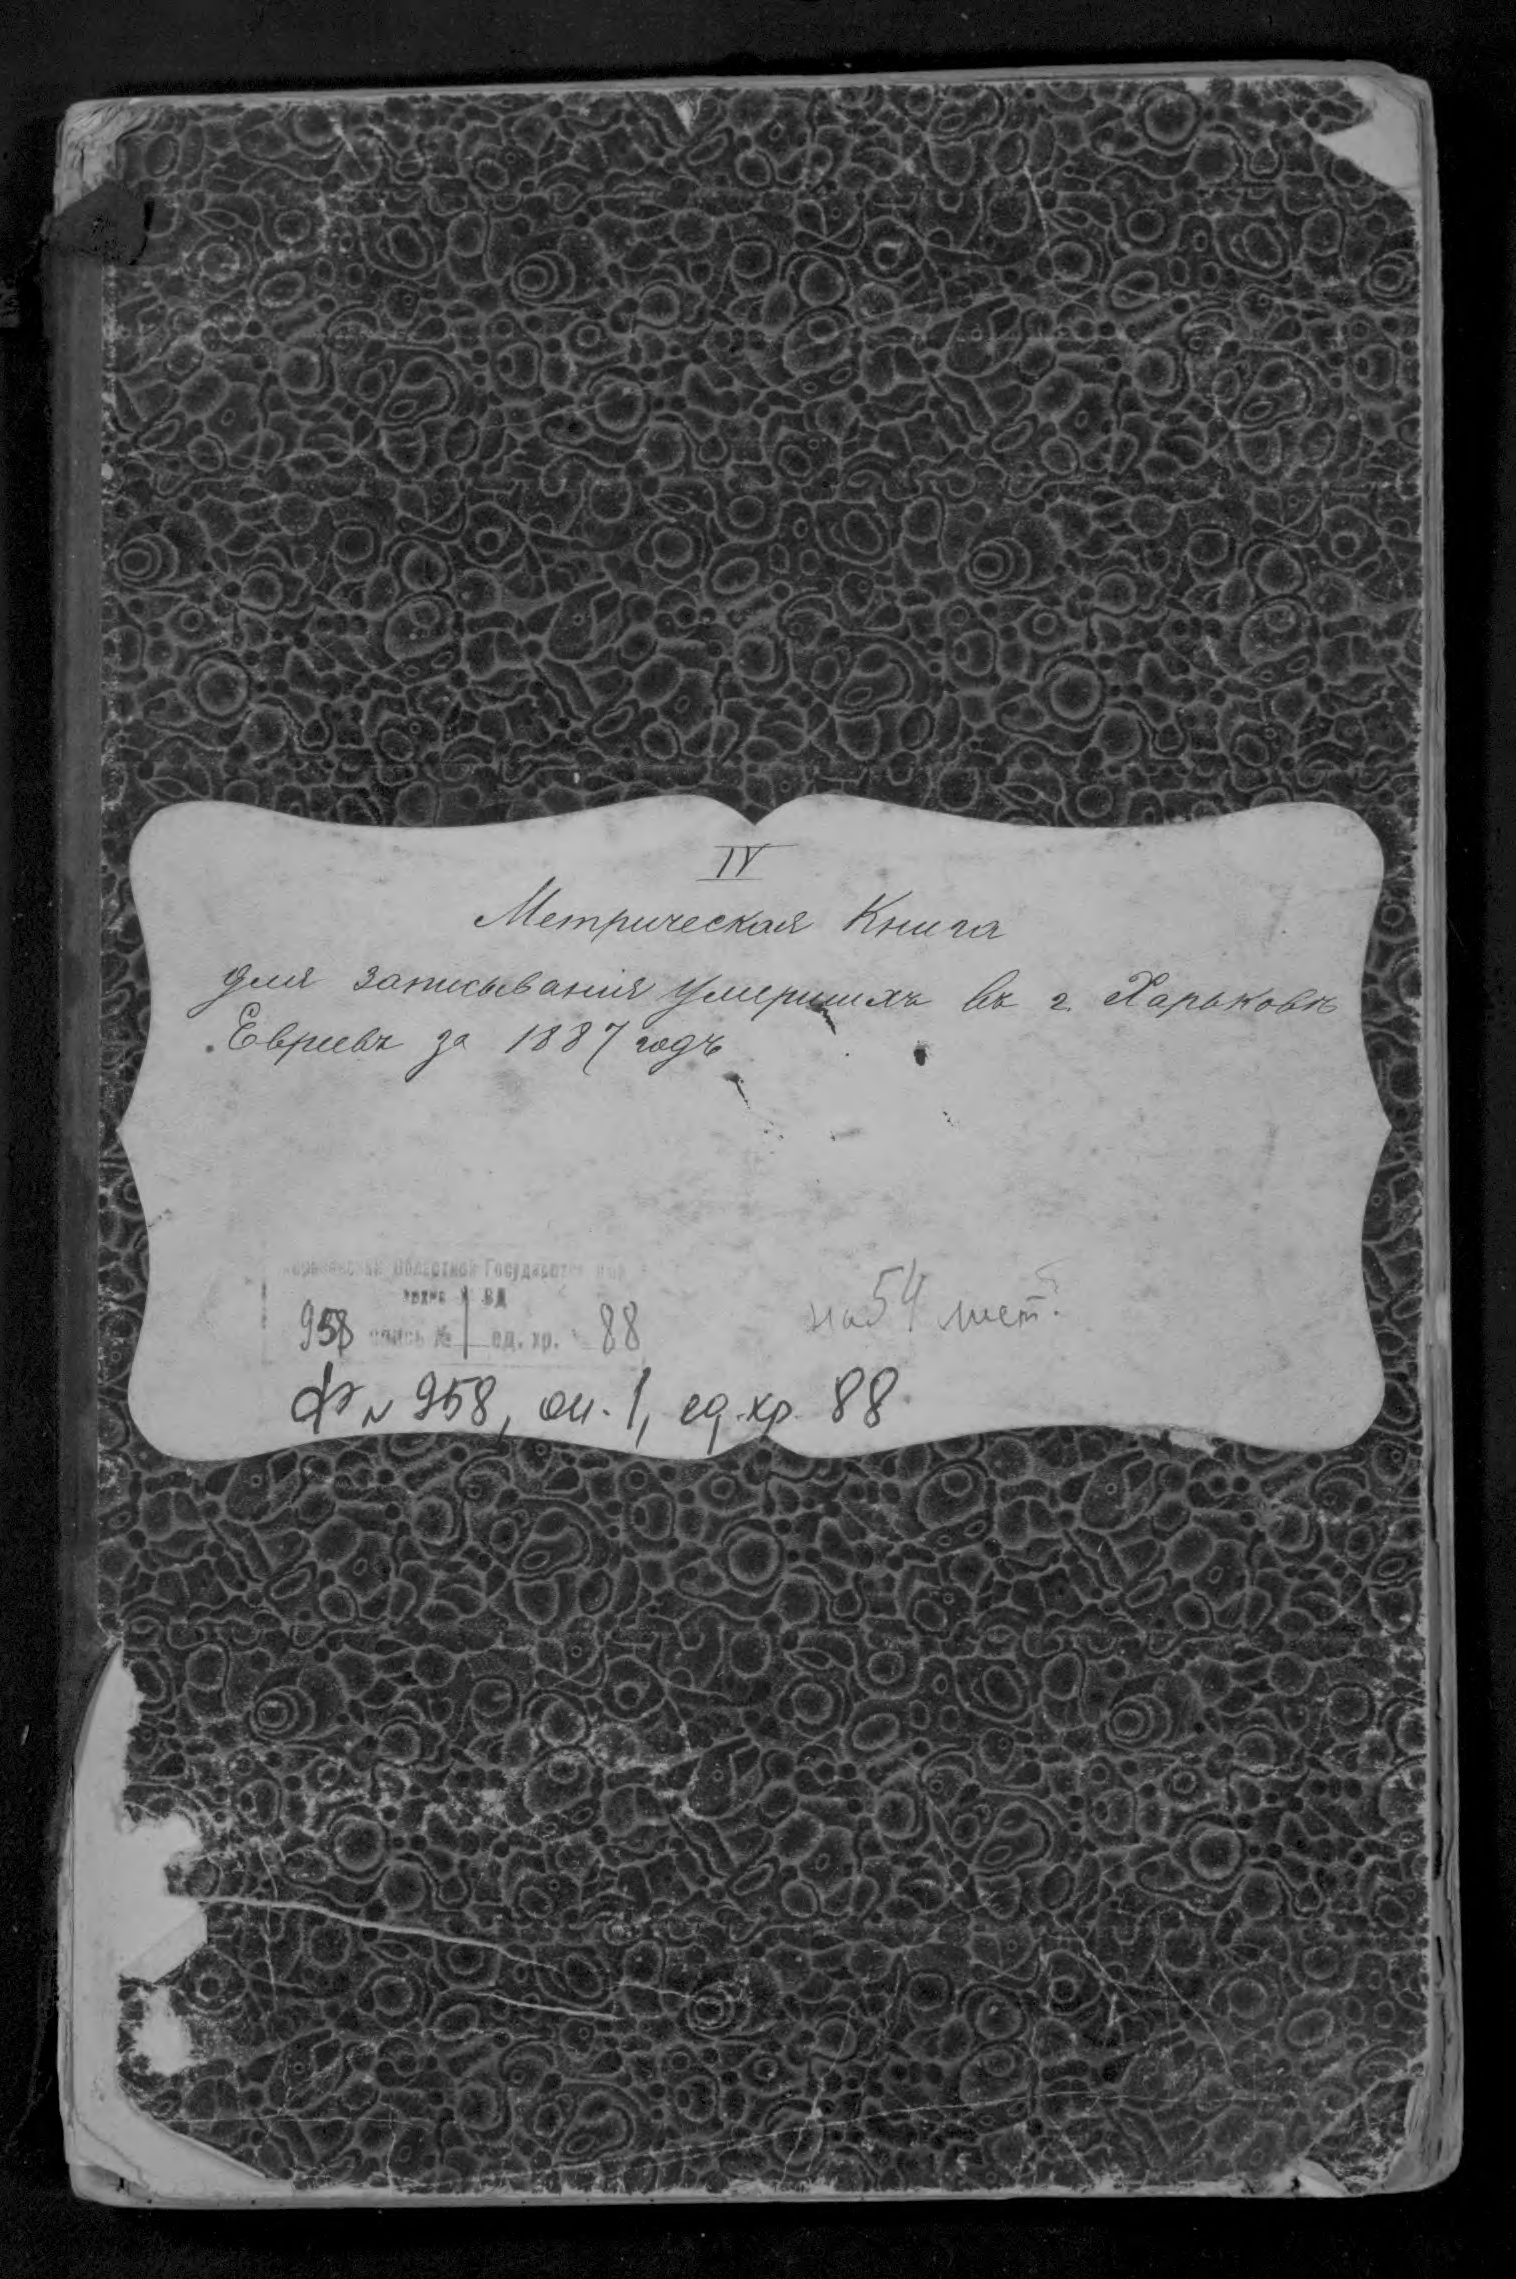 IV
Метрическая Книга
для записыванія умершихъ въ г. Харьковѣ
Евреевъ за 1887 годъ
Областной Государств
958 опись № 1 ед. хр. 88
на 54 лист.
Ф № 958, оп. 1, ед. хр. 88